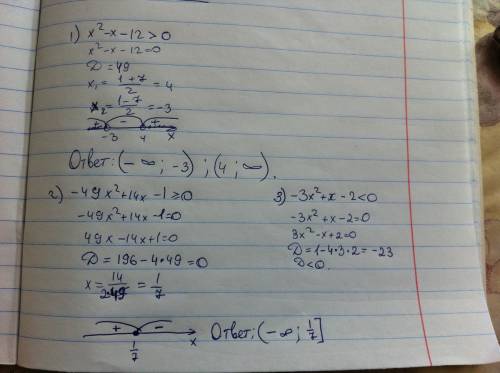 1) x²-x-12>0
x²-x-12=0
D=49
x₁=(1+7)/2=4
x₂=(1-7)/2=-3
+ - +
-3 4 x
Ответ: (-∞; -3) ; (4; ∞).
2) -49x²+14x-1≥0
-49x²+14x-1=0
49x-14x+1=0
D=196-4*49=0
x=14/(2·49)=1/7
+ -
1/7 x
Ответ: (-∞; 1/7]
3) -3x²+x-2<0
-3x²+x-2=0
3x²-x+2=0
D=1-4*3*2=-23
D<0.